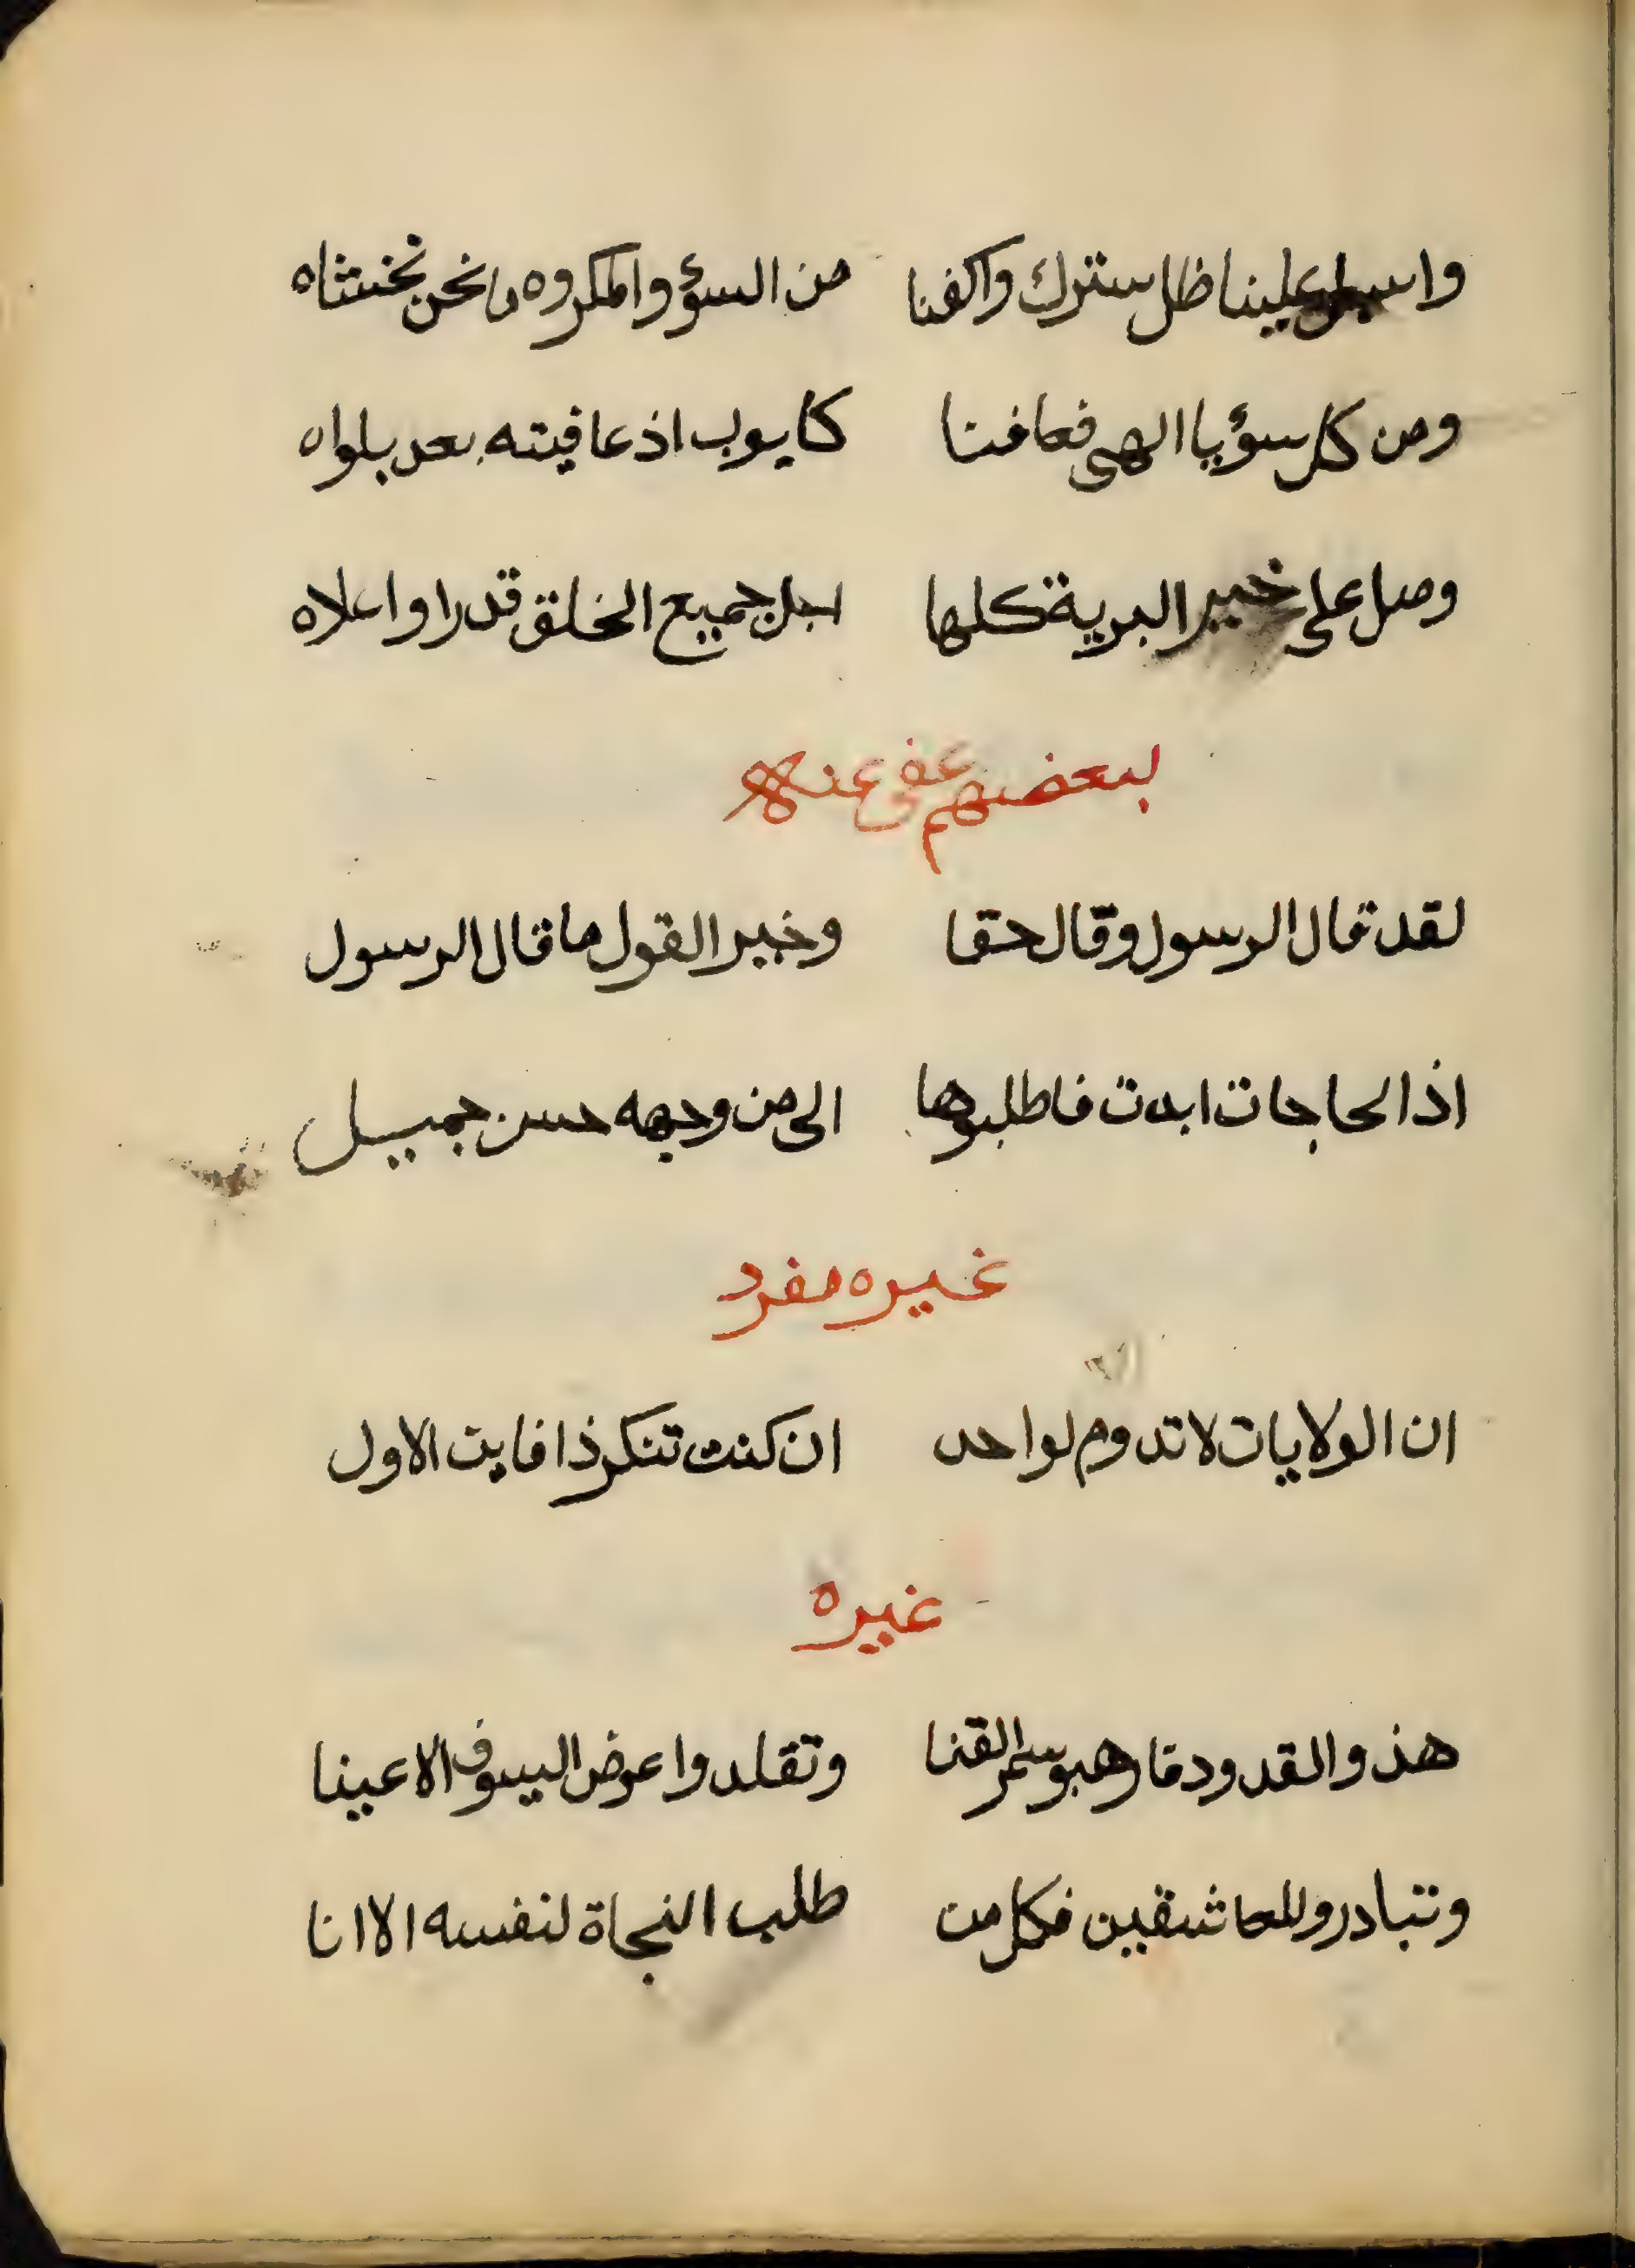 واسبل علينا ظل سترك واكفنا من السؤ والمكروه ما نحن نخشاه
ومن كل سؤ يا الهى فعافنا كايوب اذ عافيته بعد بلواه
وصل على خير البرية كلها اجل جميع الخلق قدرا واعلاه
لبعضهم عفى عنهم
لقد قال الرسول وقال حقا وخير القول ما قال الرسول
اذا الحاجات ابدت فاطلبوها الى من وجهه حسن جميل
غيره مفرد
ان الولايات لا تدوم لواحد ان كنت تنكر ذا فاين الاول
غيره
هذو القدود فارهبو سمر القنا وتقلدوا عوض السيوف الاعينا
وتبادرو للعاشقين فكل من طلب النجاة لنفسه الا انا